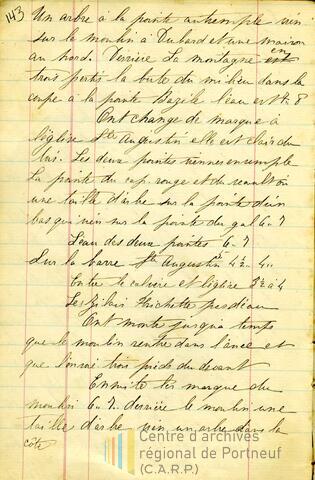 143
Un arbre à la pointe au temple vien
sur le moulin à Duhard et une maison
au nord. Derrière La montagne en est
trois partis la bute du milieu dans la
coupe a la pointe Bazile l'eau est 4. 8
Ont change de marque a
l'église Ste Augustin elle est clair du
Les deux pointes viennes ensemple
La pointe du cap rouge et du seault on
une taille d'arbe sur la pointe d'en
bas qui vien sur la pointe du gal 6-7
L'eau des deux pointes 6-7
Sur la barre St Augustin 4½ 4..
Entre le calvere et l'église 3½ à 4
Les pas d'eau
Ont monte jusqua temps
que le moulin rentre dans l'ance et
que trois pieds du devant
Ensuite les marque du
moulin 6. 7. derrière le moulin une
taille d'arbe vien un arbre dans la
côte
Centre d'archives
régional de Portneuf
(C.A.R.P.)